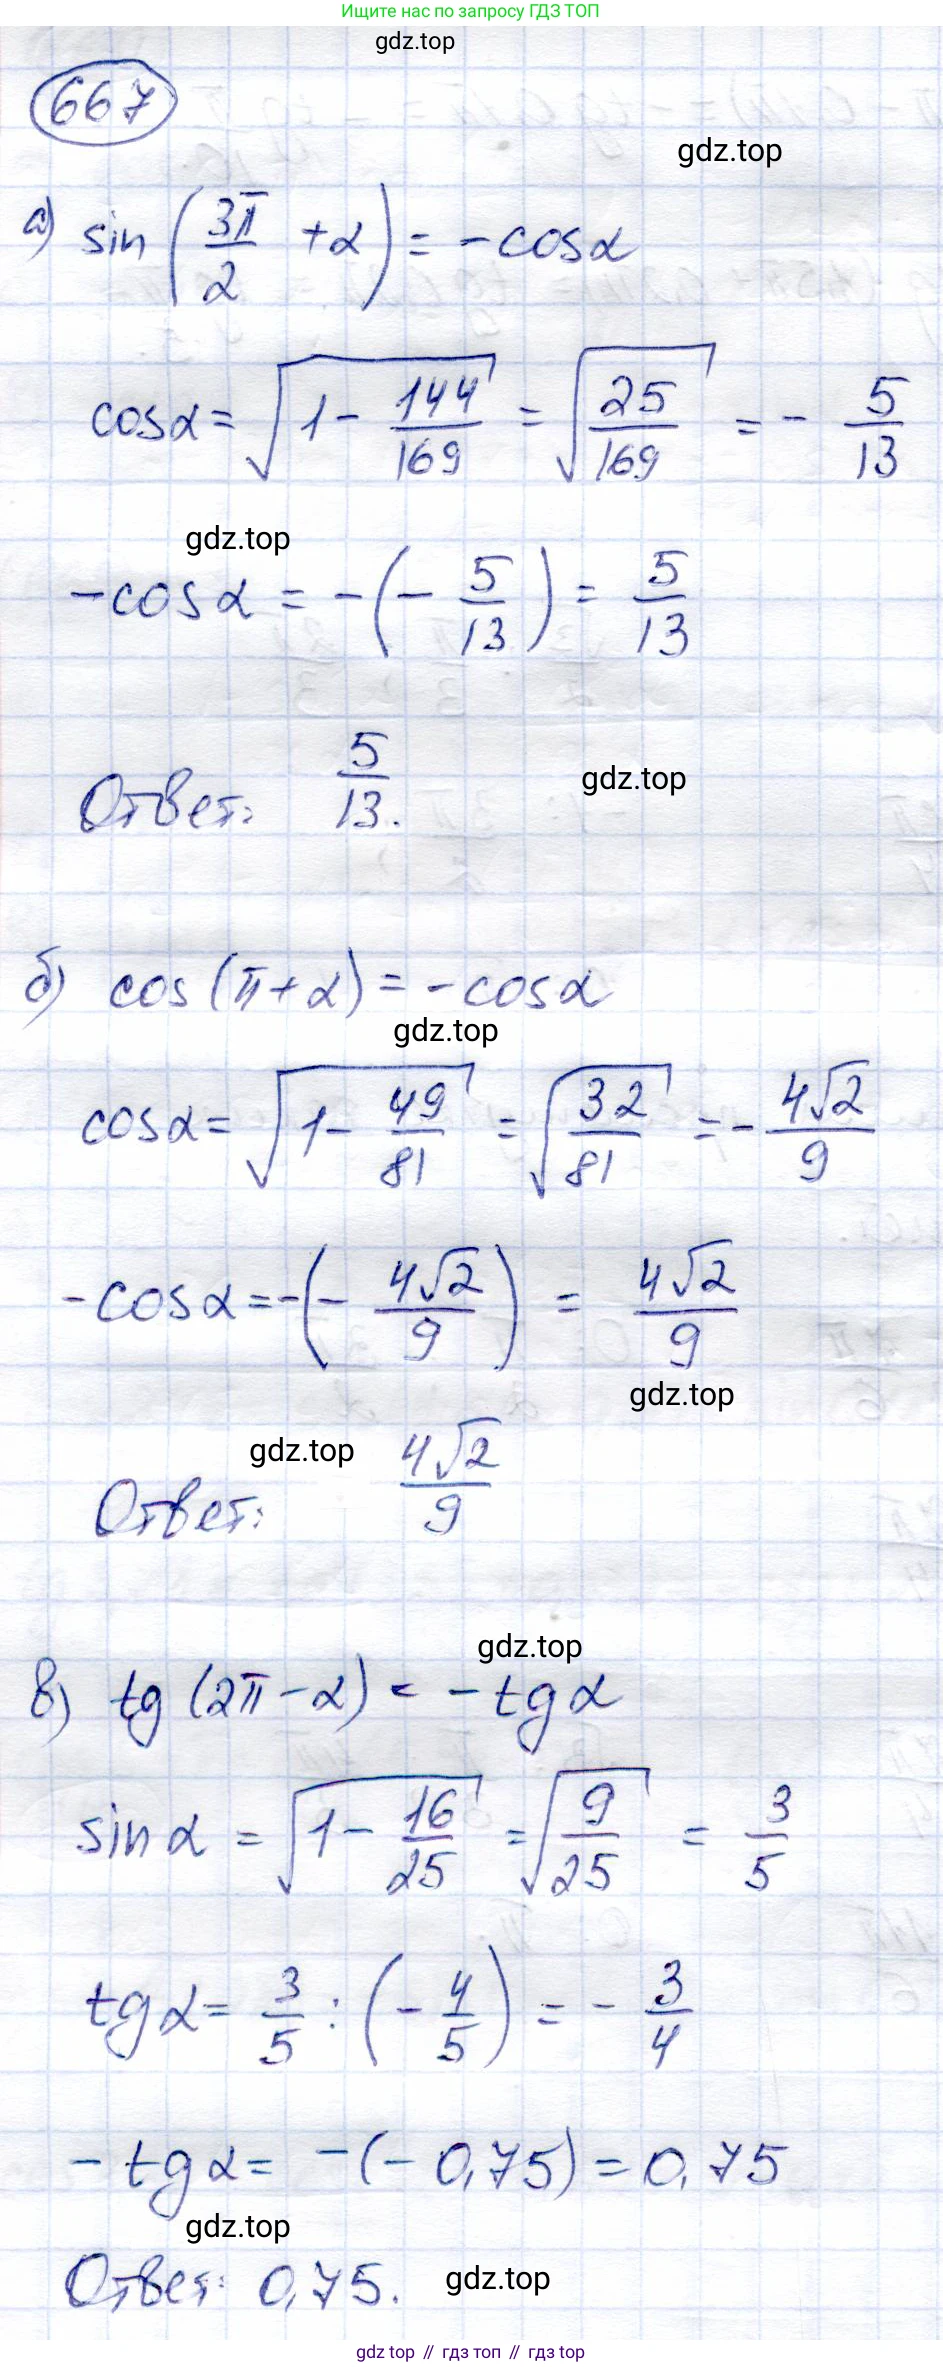 Ищите нас по запросу ГДЗ ТОП
gdz.top
667
gdz.top
а) sin (3π/2 + α) = -cosα
cosα = √(1 - 144/169) = √(25/169) = - 5/13
gdz.top
-cosα = -(- 5/13) = 5/13
Ответ: 5/13.
gdz.top
б) cos (π + α) = -cosα
gdz.top
cosα = √(1 - 49/81) = √(32/81) = - 4√2/9
-cosα = -(- 4√2/9) = 4√2/9
gdz.top
gdz.top
Ответ: 4√2/9
gdz.top
в) tg (2π - α) = -tgα
sinα = √(1 - 16/25) = √(9/25) = 3/5
tgα = 3/5 : (- 4/5) = - 3/4
-tgα = -(-0,75) = 0,75
gdz.top
Ответ: 0,75.
gdz.top
gdz top // гдз топ // gdz top